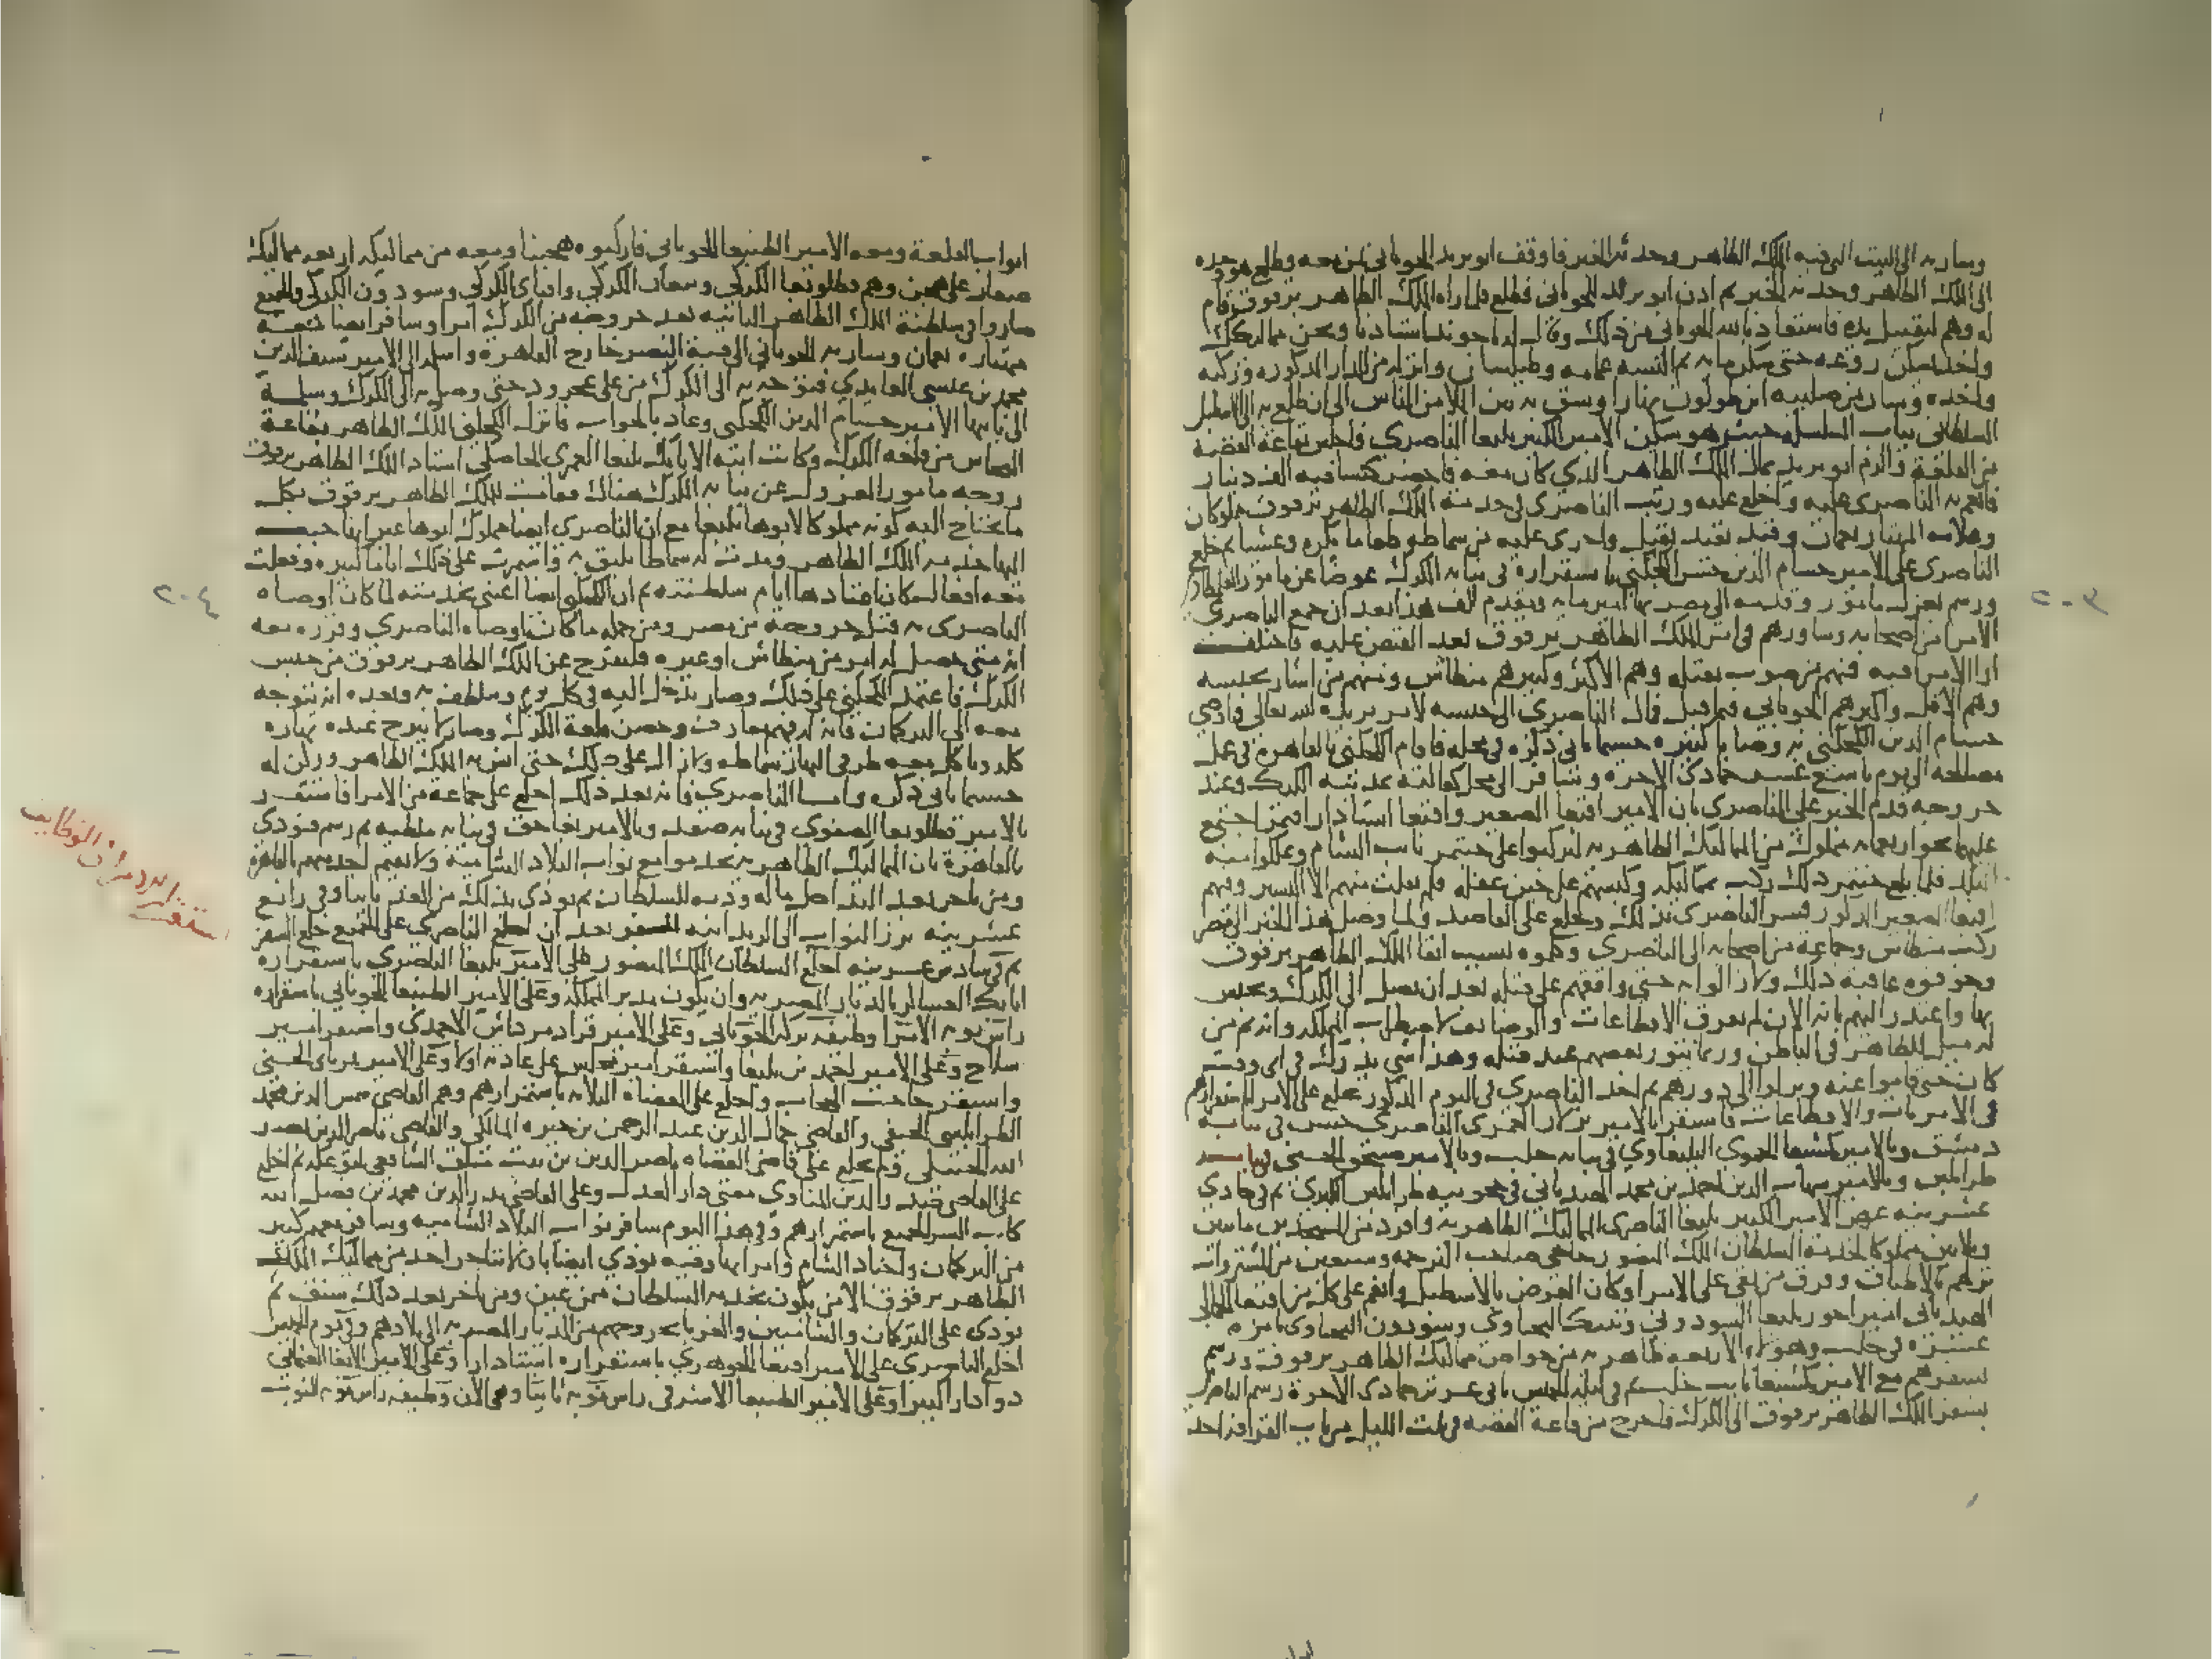 وسار به الى البيت الذى فيه الملك الظاهر وحدثه الخبر فاوقف ابو يزيد الجوبانى بمن معه وطلع هو وحده
الى الملك الظاهر وحدثه الخبر ثم اذن ابو يزيد للجوبانى فطلع فلما راه الملك الظاهر برقوق قام
له وهم لتقبيل يده فاستعاذ بالله الجوبانى من ذلك وقال له يا خوند انت استاذنا ونحن مماليكك
واخذ يسكن روعه حتى سكن ما به ثم البسه عمامه وطيلسان وانزله من الدار المذكوره واركبه
واخذه وسار من صليبه ابن طولون نهارا وشق به بين الملا من الناس الى ان طلع به الى الاسطبل
السلطانى بباب السلسلة حيث هو سكن الامير الكبير يلبغا الناصرى فاجلس بقاعة الفضة
من القلعة والزم ابو يزيد بمال الملك الظاهر الذى كان معه فاحضر كيسا فيه الف دينار
فانعم به الناصرى عليه واخلع عليه ورتب الناصرى فى خدمة الملك الظاهر برقوق مملوكان
وغلامه المهتار نعمان وقيد بقيد ثقيل واجرى عليه من سماطه طعاما بكره وعشيا ثم خلع
الناصرى على الامير حسام الدين حسن الكجكنى باستقراره فى نيابه الكرك عوضا عن مامور القلمطاوى
ورسم بعزل مامور وقدومه الى مصر بها امير مايه ومقدم الف هذا بعد ان جمع الناصرى
الامرا من اصحابه وشاورهم فى امر الملك الظاهر برقوق بعد القبض عليه فاختلفت
ارا الامرا فيه فمنهم من صوب بقتله وهم الاكثر وكبيرهم منطاش ومنهم من اشار بحبسه
وهم الاقل واكبرهم الجوبانى فيما قيل فمال الناصرى الى حبسه لامر يريده الله تعالى واوصى
حسام الدين الكجكنى به وصايا كثيره حسبما ياتى ذكره فى محله فاقام الكجكنى بالقاهرة فى عمل
مصلحه الى يوم تاسع عشر جمادى الاخره وسافر الى محل كفالته بمدينه الكرك وعند
خروجه قدم الخبر على الناصرى بان الامير اقبغا الصغير واقبغا استادار اقتمر اجتمع
عليهما نحو اربعمايه مملوك من المماليك الظاهريه ليركبوا على جنتمر نايب الشام ويملكوا منه
البلد فلما بلغ جنتمر ذلك ركب بمماليكه وكبسهم على حين غفله فلم يفلت منهم الا اليسير وفيهم
اقبغا الصغير المذكور فسر الناصرى بذلك وخلع على القاصد ولما وصل هذا الخبر الى مصر
ركب منطاش وجماعة من اصحابه الى الناصرى وكلموه بسبب ابقا الملك الظاهر برقوق
وخوفوه عاقبة ذلك ولا زالوا به حتى وافقهم على قتله بعد ان يصل الى الكرك ويحبس
بها واعتذر اليهم بانه الان لم يفرق الاقطاعات والوظايف لاضطراب المملكه وانه ثم من
له ميل للظاهر فى الباطن وربما يثور بعضهم عند قتله وهذا شى يدرك فى اى وقت
كان حتى قاموا عنه ونزلوا الى دورهم ثم اخذ الناصرى فى اليوم المذكور يخلع على الامرا باستقرارهم
فى الامريات والاقطاعات فاستقر بالامير بزلار العمرى الناصرى حسن فى نيابة
دمشق وبالامير كمشبغا الحموى اليلبغاوى فى نيابه حلب وبالامير صنجق الحسنى فى نيابه
طرابلس وبالامير شهاب الدين احمد بن محمد الهيدبانى فى حجوبيه طرابلس الكبرى ثم فى حادى
عشرينه عرض الامير الكبير يلبغا الناصرى المماليك الظاهريه وافرد من المستجدين مايتين
وثلاثين مملوكا لخدمة السلطان الملك المنصور حاجى صاحب الترجمه وسبعين من المشتروات
نزلهم بالاطباق وفرق من بقى على الامرا وكان العرض بالاسطبل وانعم على كل من اقبغا الجمالى
الهيدبانى امير اخور ويلبغا السودونى وتنبك اليحياوى وسودون اليحياوى بامرة
عشره فى حلب وهولا الاربعه ظاهريه من خواص مماليك الظاهر برقوق ورسم
بسفرهم مع الامير كمشبغا نايب حلب ثم فى ليله الخميس ثانى عشرين جمادى الاخرة رسم الناصرى
بسفر الملك الظاهر برقوق الى الكرك فاخرج من قاعة الفضه فى ثلث الليل من باب القرافه احد
٢٠٣
ابواب القلعة ومعه الامير الطنبغا الجوبانى فاركبوه هجينا ومعه من مماليكه اربعه مماليك
صغار على هجن وهم قطلوبغا الكركى وبيغان الكركى واقباى الكركى وسودون الكركى والجميع
صاروا فى سلطنة الملك الظاهر الثانيه بعد خروجه من الكرك امرا وسافر ايضا معه
مهتاره نعمان وسار به الجوبانى الى قبة النصر خارج القاهرة واسلمه الى الامير سيف الدين
محمد بن عيسى العايدى فتوجه به الى الكرك من على عجرود حتى وصل به الى الكرك وسلمه
الى نايبها الامير حسام الدين الكجكنى وعاد بالجواب فانزل الكجكنى الملك الظاهر بقاعة
النحاس من قلعه الكرك وكانت ابنة الاتابك يلبغا العمرى الخاصكى استاد الملك الظاهر برقوق
زوجه مامور المعزول عن نيابه الكرك هناك فقامت للملك الظاهر برقوق بكل
ما يحتاج اليه كونه مملوكا لابوها يلبغا مع ان الناصرى ايضا مملوك ابوها غير انها حبب
اليها خدمه الملك الظاهر ومدت له سماطا يليق به واستمرت على ذلك اياما كثيره وفعلت
معه افعالا كان اعتادها ايام سلطنته ثم ان الكجكنى ايضا اعتنى بخدمته لما كان اوصاه
الناصرى به قبل خروجه من مصر ومن جمله ما كان اوصاه الناصرى وقرره معه
انه متى حصل له امر من منطاش او غيره فليفرج عن الملك الظاهر برقوق من حبس
الكرك فاعتمد الكجكنى على ذلك وصار يدخل اليه فى كل يوم ويتلطف به ويعده انه يتوجه
معه الى التركمان فان له فيهم معارف وحصن قلعة الكرك وصار لا يبرح عنده نهاره
كله وياكل معه طرفى النهار سماطه ولا زال على ذلك حتى انس به الملك الظاهر وركن له
حسبما ياتى ذكره واما الناصرى فانه بعد ذلك اخلع على جماعة من الامرا فاستقر
بالامير قطلوبغا الصفوى فى نيابه صفد وبالامير بغاجق فى نيابه ملطيه ثم رسم فنودى
بالقاهرة بان المماليك الظاهريه تخدم مع نواب البلاد الشاميه ولا يقيم احد منهم بالقاهرة
ومن تاخر بعد الندا حل ماله ودمه للسلطان ثم نودى بذلك من الغد ثانيا وفى رابع
عشرينه برز النواب الى الريدانيه للسفر بعد ان اخلع الناصرى على الجميع خلع السفر
ثم فى سادس عشرينه اخلع السلطان الملك المنصور على الامير يلبغا الناصرى باستقراره
اتابك العساكر بالديار المصريه وان يكون مدبر المملكه وعلى الامير الطنبغا الجوبانى باستقراره
راس نوبه الامرا وظيفه بركه الجوبانى وعلى الامير قرا دمرداش الاحمدى واستقر امير
سلاح وعلى الامير احمد بن يلبغا واستقر امير مجلس على عادته اولا وعلى الامير تمرباى الحسنى
واستقر حاجب الحجاب واخلع على القضاه الثلاثه باستمرارهم وهم القاضى شمس الدين محمد
الطرابلسى الحنفى والقاضى جمال الدين عبد الرحمن بن خير المالكى والقاضى ناصر الدين نصر
الله الحنبلى ولم يخلع على قاضى القضاه ناصر الدين بن بنت ميلق الشافعى لتوعكه ثم اخلع
على القاضى صدر الدين المناوى مفتى دار العدل وعلى القاضى بدر الدين محمد بن فضل الله
كاتب السر الجميع باستمرارهم وفى هذا اليوم سافر نواب البلاد الشاميه وسافر معهم كثير
من التركمان واجناد الشام وامرايها وفيه نودى ايضا بان لا يتاخر احد من مماليك الملك
الظاهر برقوق الا من يكون بخدمه السلطان ممن عين ومن تاخر بعد ذلك شنق ثم
نودى على التركمان والشاميين والغربا بخروجهم من الديار المصريه الى بلادهم وفى يوم الخميس
اخلع الناصرى على الامير اقبغا الجوهرى باستقراره استادارا وعلى الامير الابغا العثمانى
دوادارا كبيرا وعلى الامير الطنبغا الاشرفى راس نوبه ثانيا وهى الان وظيفه راس نوبه النوب
٢٠٤